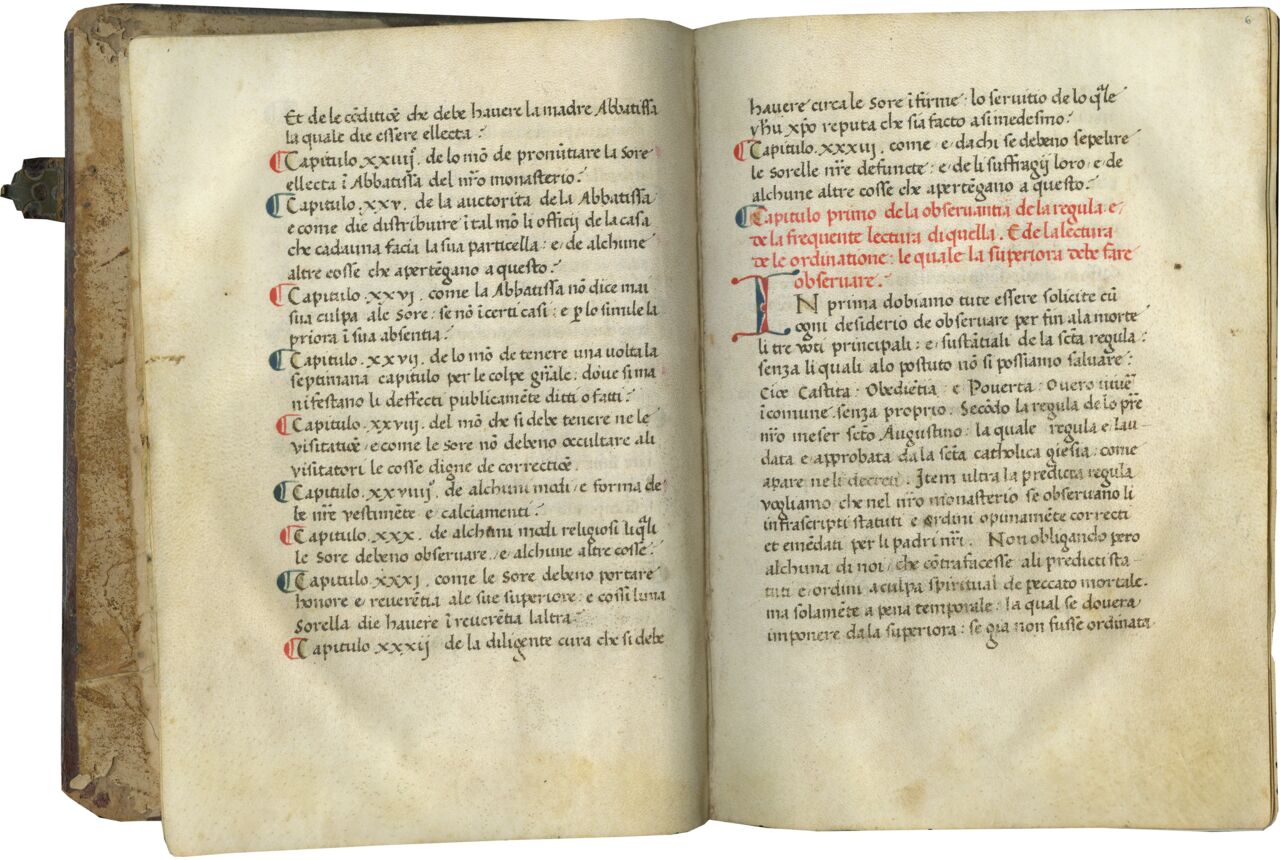 Et de le cõditiõe che debe havere la madre Abbatissa
la quale die essere ellecta :
Capitulo xxiiijº. de lo mõ de pronũtiare la Sore
ellecta ĩ Abbatissa del nr̃o monasterio :
Capitulo. xxv. de la auctorita de la Abbatissa
e come die distribuire ĩ tal mõ li officij de la casa
che cadauna facia la sua particella : e de alchune
altre cosse che apertẽgano a questo :
Capitulo. xxvj. come la Abbatissa nõ dice mai
sua culpa ale Sore : se nõ ĩ certi casi : e ꝑ lo simule la
priora ĩ sua absentia :
Capitulo. xxvij. de lo mõ de tenere una volta la
septimana capitulo per le colpe gñale : dove si ma
nifestano li deffecti publicamẽte ditti o fatti :
Capitulo. xxviij. del mõ che si debe tenere ne le
visitatiõe e come le Sore nõ debeno occultare ali
visitatori le cosse digne de correctiõe.
Capitulo. xxviiijº. de alchuni modi e forma de
le nr̃e vestimẽte e calciamenti :
Capitulo. xxx. de alchuni modi religiosi li q̃li
le Sore debeno observare e alchune altre cosse :
Capitulo. xxxj. come le Sore debeno portare
honore e reverẽtia ale sue superiore : e cossi luna
Sorella die havere ĩ reverẽtia laltra :
Capitulo xxxij de la diligente cura che si debe
6
havere circa le Sore ĩfirme : lo servitio de lo q̃le
yhũ xp̃o reputa che sia facto a si medesimo :
Capitulo. xxxvj. come e da chi se debeno sepelire
le sorelle nr̃e defuncte : e de li suffragij loro e de
alchune altre cosse che apertẽgano a questo :
Capitulo primo de la observantia de la regula e
de la frequente lectura di quella . E de la lectura
de le ordinatione : le quale la superiora debe fare
observare :
IN prima dobiamo tute essere solicite cũ
ogni desiderio de observare per fin ala morte
li tre voti principali : e sustãtiali de la sc̃ta regula :
senza li quali al postuto nõ si possiamo salvare :
Cioe Castita : Obediẽtia : e Poverta : Overo vivẽ
ĩ comune senza proprio. Secõdo la regula de lo pr̃e
nr̃o meser sc̃to Augustino : la quale regula e lau
data e approbata da la sc̃ta catholica giesia : come
apare ne li decreti . Item ultra la predicta regula
vogliamo che nel nr̃o monasterio se observano li
infrascripti statuti e ordini opinamẽte correcti
et emẽdati per li padri nr̃i. Non obligando pero
alchuna di noi che cõtrafacesse ali predicti sta
tuti e ordini a culpa spiritual de peccato mortale.
ma solamẽte a pena temporale : la qual se dovera
imponere da la superiora : se gia non fusse ordinata